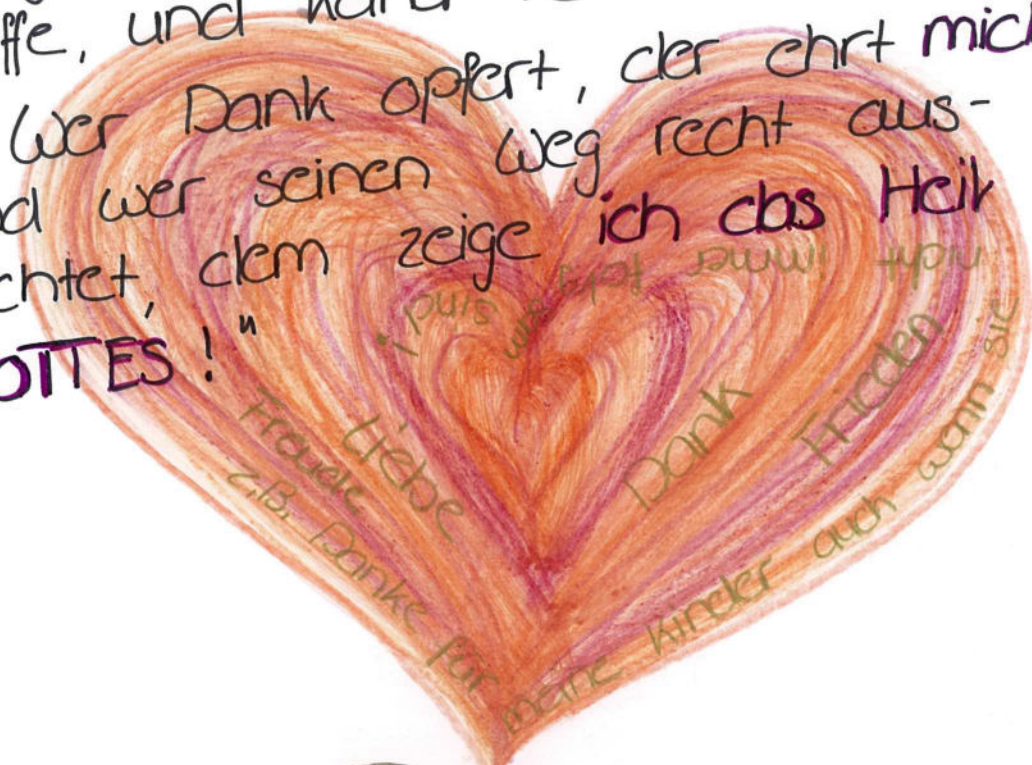 ffe, und
Wer Dank opfert, der ehrt mich
nd wer seinen Weg recht aus-
chtet, dem zeige ich das Heil
OTTES!"
Freude
Liebe
Dank
Frieden
z.B. Danke für meine Kinder auch wenn sie nicht immer folgsam sind!